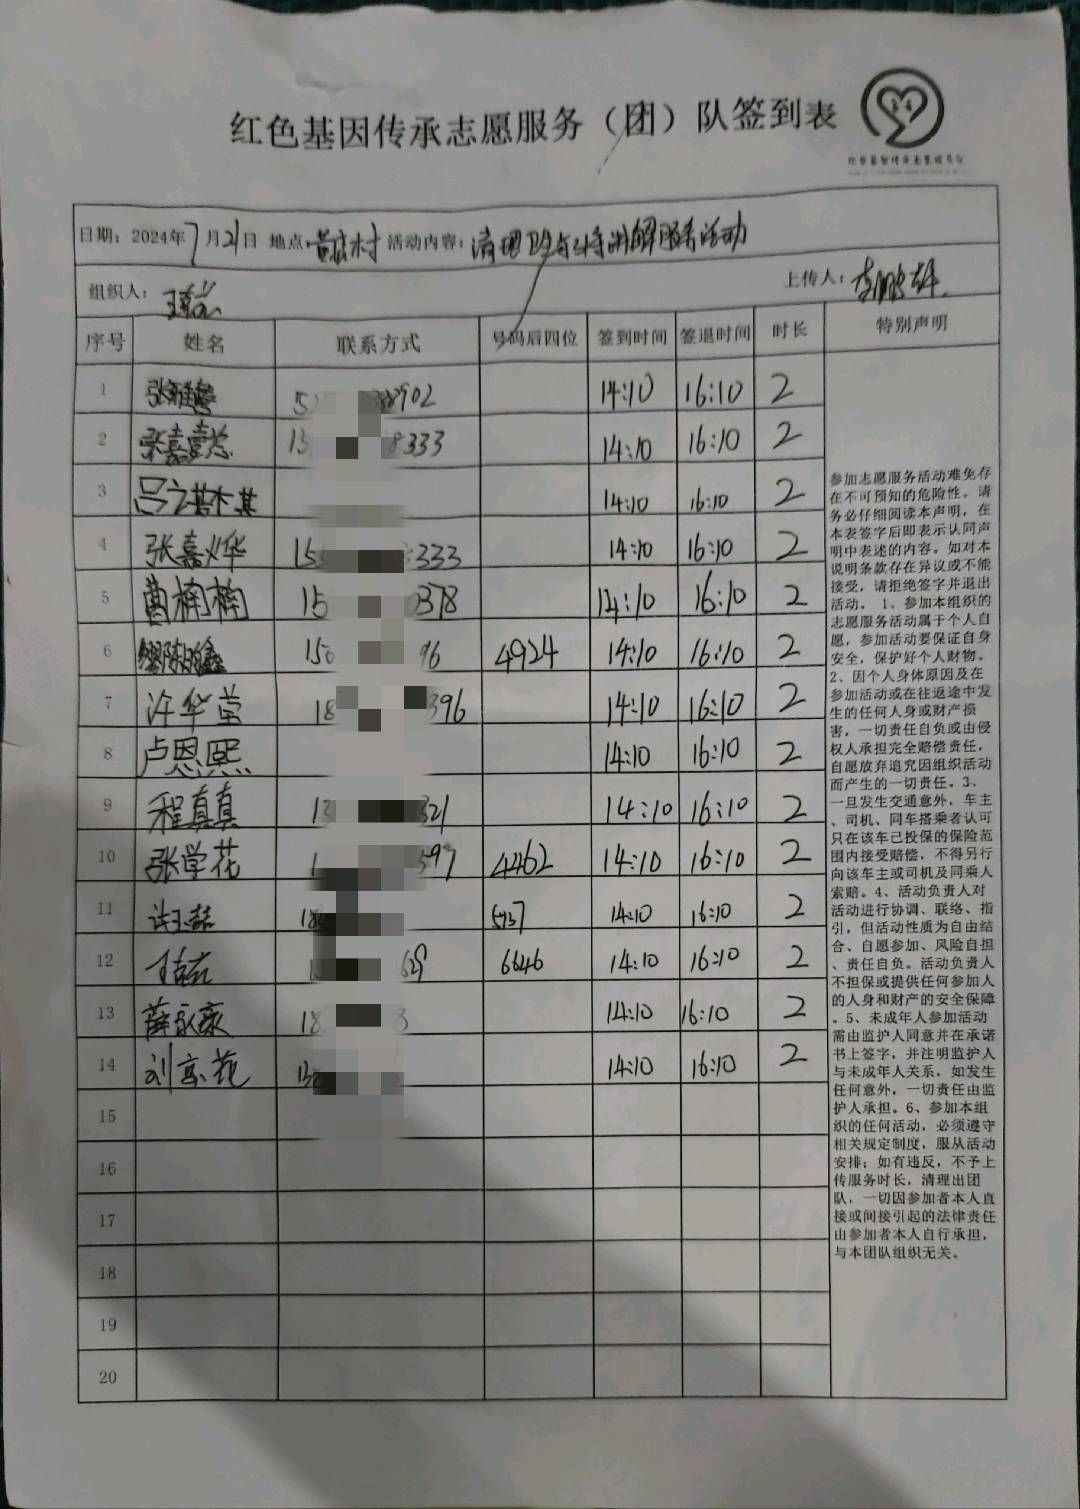 红色基因传承志愿服务（团）队签到表
日期：2024年7月21日 地点：黄庄村 活动内容：清理卫生与 讲解服务活动
组织人：
上传人：
序号 姓名 联系方式 号码后四位 签到时间 签退时间 时长 特别声明
1 902 14:10 16:10 2
2 张嘉 13 8333 14:10 16:10 2
3 14:10 16:10 2
4 张嘉烨 15 333 14:10 16:10 2
5 楠楠 15 0378 14:10 16:10 2
6 150 96 4924 14:10 16:10 2
7 许华莹 18 396 14:10 16:10 2
8 卢恩熙 14:10 16:10 2
9 程真真 13 321 14:10 16:10 2
10 张学花 1 597 4462 14:10 16:10 2
11 18 14:10 16:10 2
12 629 6646 14:10 16:10 2
13 薛永豪 18 3 14:10 16:10 2
14 刘 花 14:10 16:10 2
15
16
17
18
19
20
参加志愿服务活动难免存
在不可预知的危险性。请
务必仔细阅读本声明，在
本表签字后即表示认同声
明中表述的内容。如对本
说明条款存在异议或不能
接受，请拒绝签字并退出
活动。1、参加本组织的
志愿服务活动属于个人自
愿，参加活动要保证自身
安全，保护好个人财物。
2、因个人身体原因及在
参加活动或在往返途中发
生的任何人身或财产损
害，一切责任自负或由侵
权人承担完全赔偿责任，
自愿放弃追究因组织活动
而产生的一切责任。3、
一旦发生交通意外，车主
、司机、同车搭乘者认可
只在该车已投保的保险范
围内接受赔偿，不得另行
向该车主或司机及同乘人
索赔。4、活动负责人对
活动进行协调、联络、指
引，但活动性质为自由结
合、自愿参加、风险自担
、责任自负。活动负责人
不担保或提供任何参加人
的人身和财产的安全保障
。5、未成年人参加活动
需由监护人同意并在承诺
书上签字，并注明监护人
与未成年人关系，如发生
任何意外，一切责任由监
护人承担。6、参加本组
织的任何活动，必须遵守
相关规定制度，服从活动
安排；如有违反，不予上
传服务时长，清理出团
队，一切因参加者本人直
接或间接引起的法律责任
由参加者本人自行承担，
与本团队组织无关。